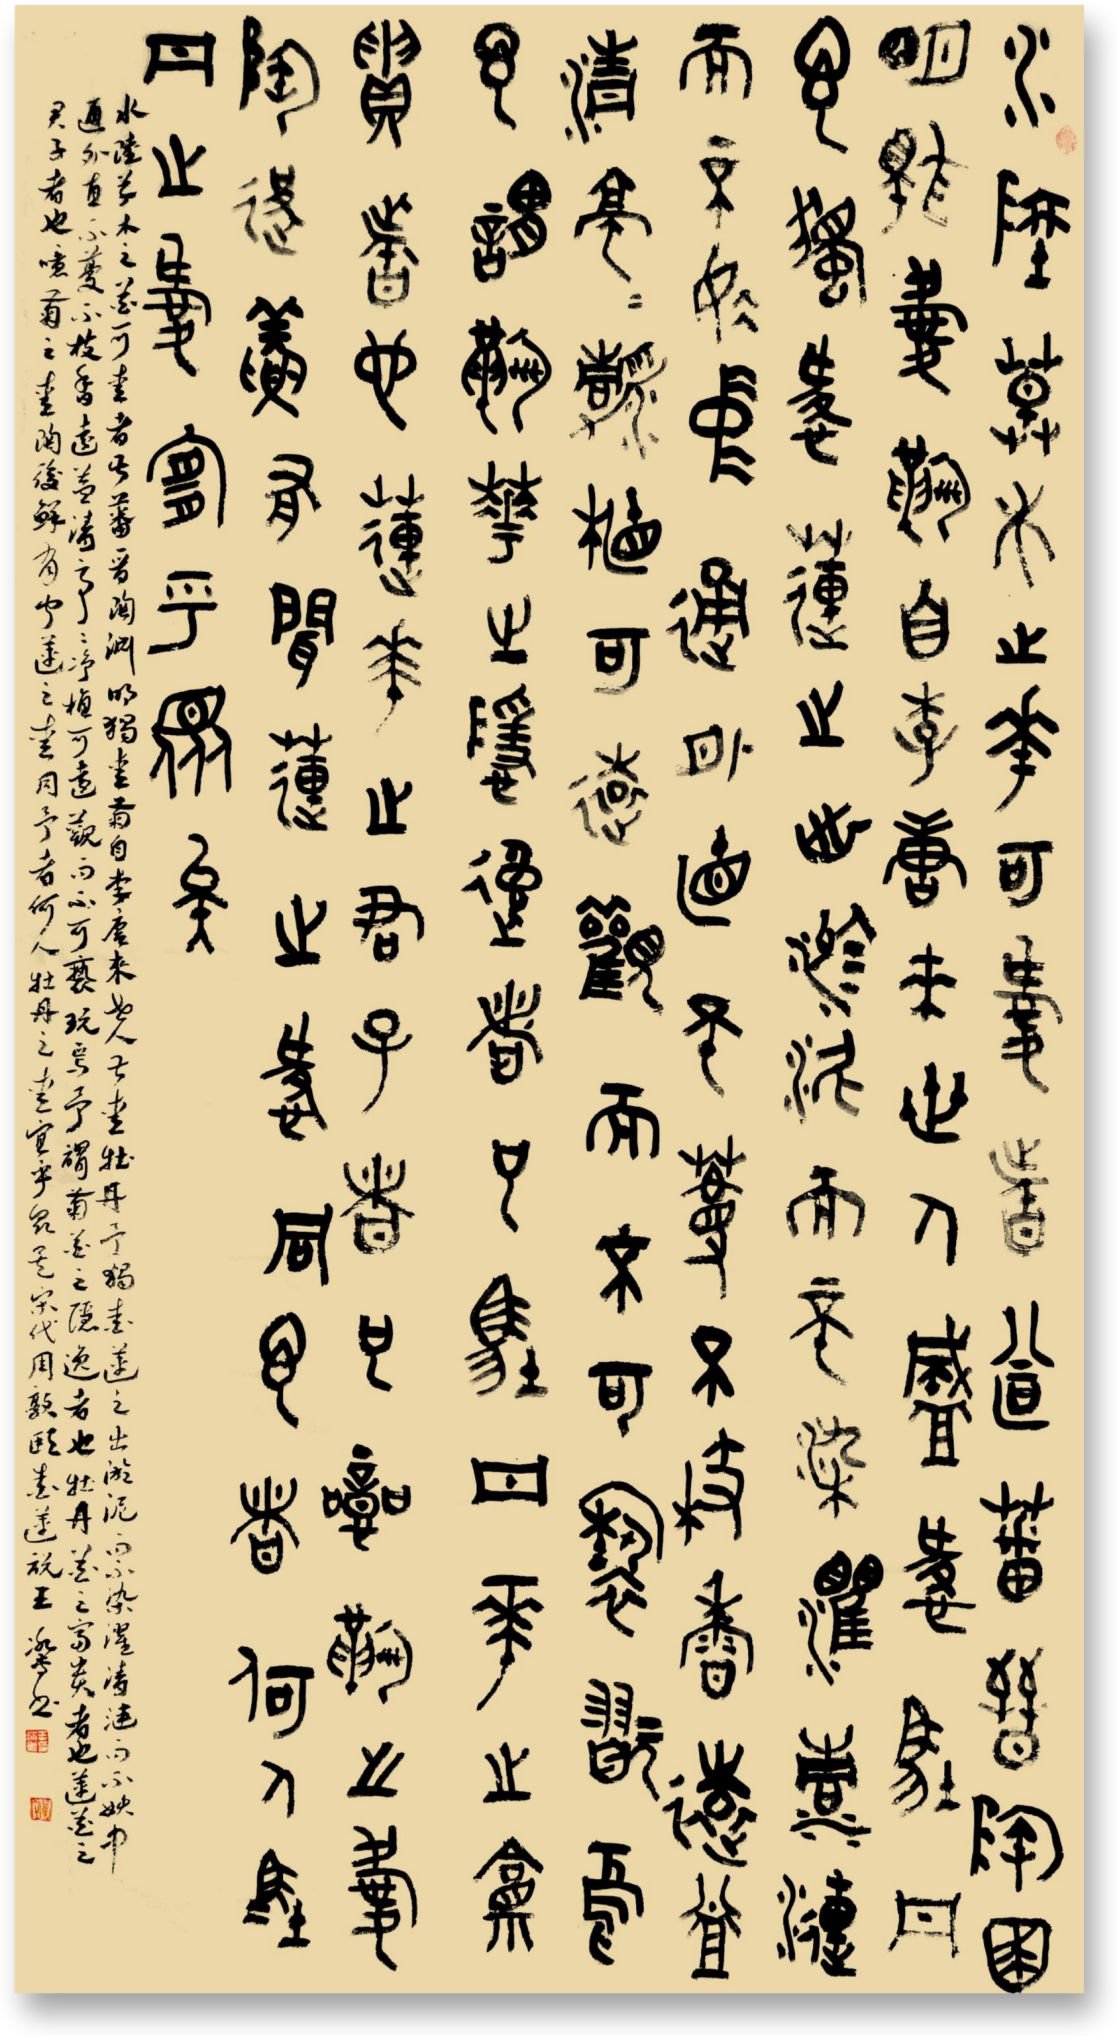 水陸草木之華可愛者甚蕃晉陶淵
明獨愛菊自李唐來世人盛愛牡丹
予獨愛蓮之出淤泥而不染濯清漣
而不妖中通外直不蔓不枝香遠益
清亭亭靜植可遠觀而不可褻翫焉
予謂菊華之隱逸者也牡丹華之富
貴者也蓮華之君子者也噫菊之愛
陶後鮮有聞蓮之愛同予者何人牡
丹之愛宜乎眾矣
水陸草木之花可愛者甚蕃晉陶淵明獨愛菊自李唐來世人甚愛牡丹予獨愛蓮之出淤泥而不染濯清漣而不妖中
通外直不蔓不枝香遠益清亭亭淨植可遠觀而不可褻玩焉予謂菊花之隱逸者也牡丹花之富貴者也蓮花之
君子者也噫菊之愛陶後鮮有聞蓮之愛同予者何人牡丹之愛宜乎眾矣宋代周敦頤愛蓮說王書